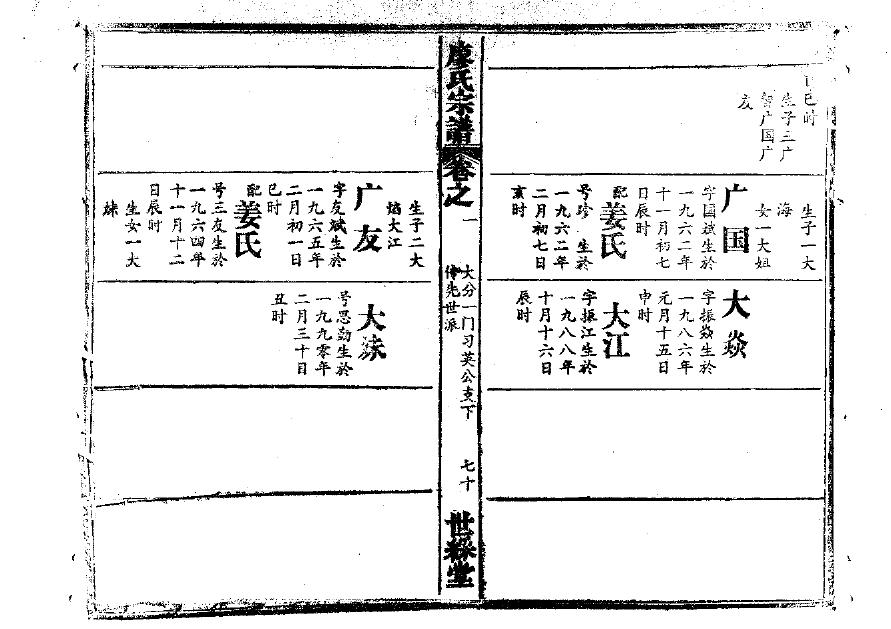 巳时
生子三广
智广国广
友
生子一大
海
女一大姐
广国
字国斌生於
一九六二年
十一月初七
日辰时
配姜氏
号珍 生於
一九六二年
二月初七日
亥时
大焱
字振焱生於
一九八六年
元月十五日
申时
大江
字振江生於
一九八八年
十月十六日
辰时
廖氏宗譜卷之一
大分一门习英公支下
傳先世派
七十
世綵堂
生子二大
焰大江
广友
字友斌生於
一九六五年
二月初一日
巳时
配姜氏
号三友生於
一九六四年
十一月十二
日辰时
生女一大
妹
大
号思勤生於
一九九零年
二月三十日
丑时